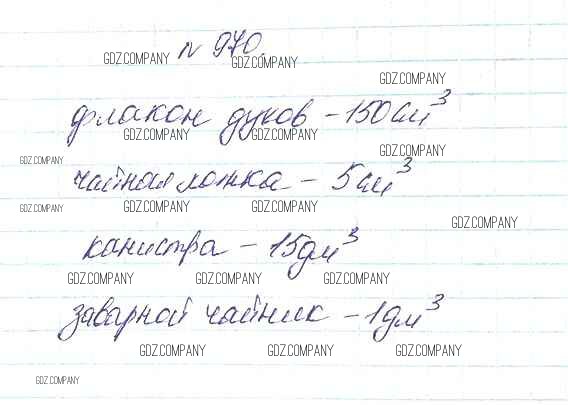 N 970.
GDZ.COMPANY GDZ.COMPANY
GDZ.COMPANY
флакон духов - 150 см³
GDZ.COMPANY GDZ.COMPANY
GDZ.COMPANY
GDZ.COMPANY
чайная ложка - 5 см³
GDZ.COMPANY GDZ.COMPANY GDZ.COMPANY
GDZ.COMPANY
канистра - 15 дм³
GDZ.COMPANY GDZ.COMPANY GDZ.COMPANY
заварной чайник - 1 дм³
GDZ.COMPANY GDZ.COMPANY GDZ.COMPANY
GDZ.COMPANY